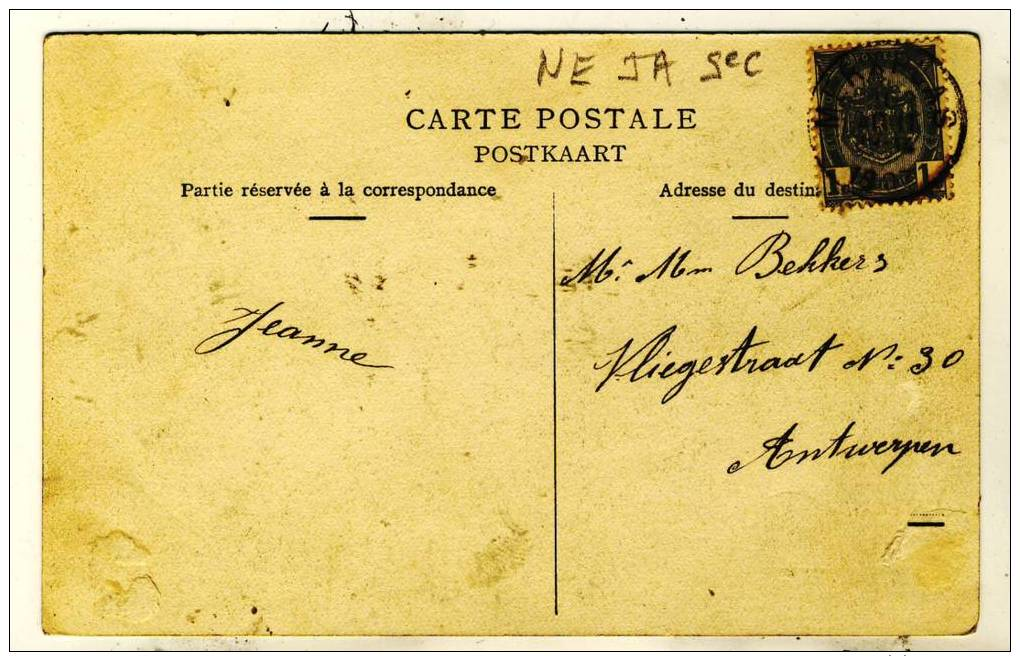 NE JA SeC
CARTE POSTALE
POSTKAART
Partie réservée à la correspondance
Adresse du destina
1 1
Jeanne
Mr. Mm Bekkers
Vliegestraat No: 30
Antwerpen